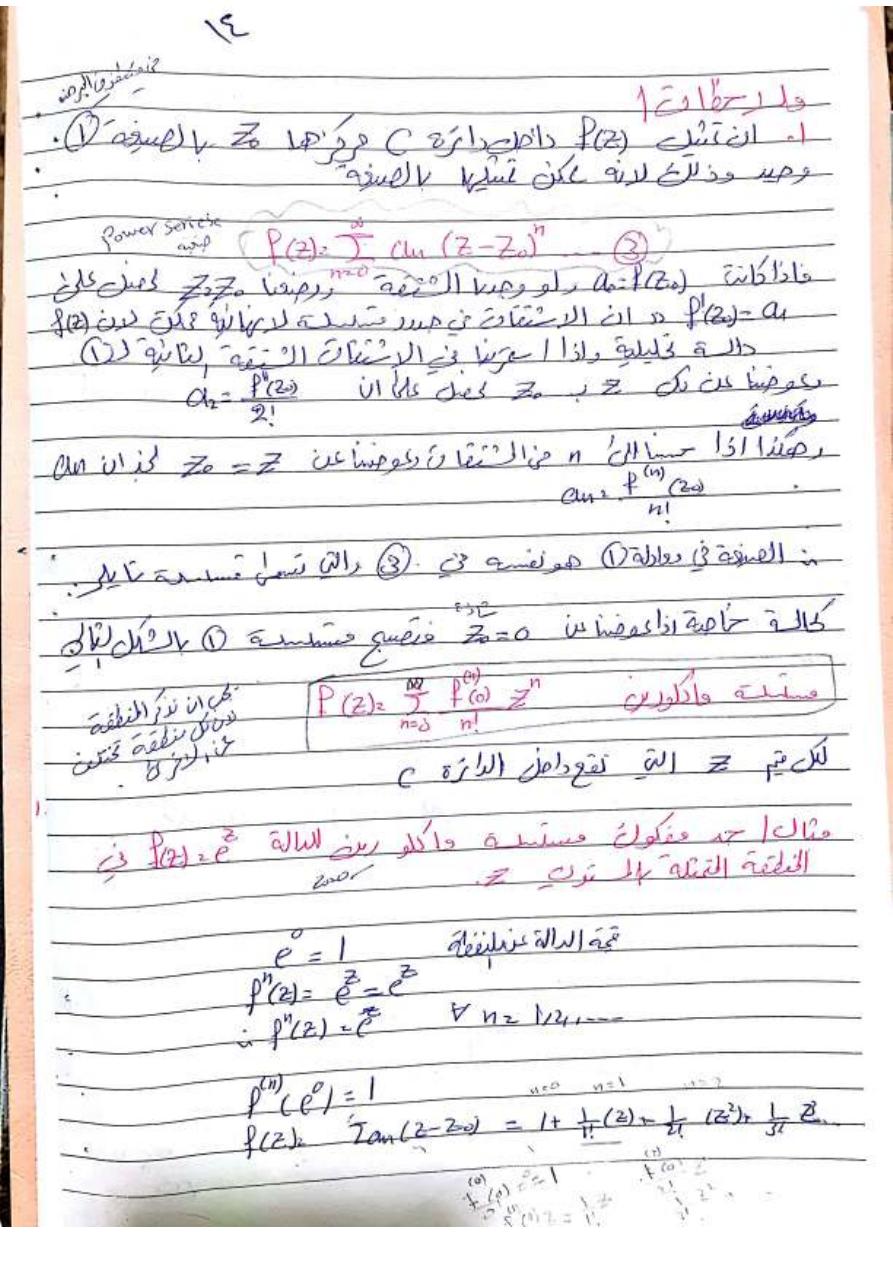 ١٤
ملاحظات /
١. ان تمثيل f(z) داخل دائرة C مركزها z₀ بالصيغة ①
وحيد وذلك لانه يمكن تمثيلها بالصيغة
Power series
f(z) = ∑_{n=0}^{∞} an (z-z₀)ⁿ ... ③
فاذا كانت a₀ = f(z₀) ولو وجدنا المشتقة ووضعنا z=z₀ نحصل على
f'(z₀) = a₁ ان الاشتقاق في حدود متسلسلة لانهائية ممكن لان f(z)
دالة تحليلية واذا استمرينا في الاشتقاق المشتقة الثانية لـ ①
وعوضنا عن كل z بـ z₀ نحصل على ان a₂ = f''(z₀)/2!
وهكذا اذا حسبنا الى n من المشتقات وعوضنا عن z₀ = z نجد ان an
an = f⁽ⁿ⁾(z₀)/n!
∴ الصيغة في معادلة ① هو نفسه في ③ والتي تسمى متسلسلة تايلر.
كحالة خاصة اذا عوضنا عن z₀=0 فتصبح متسلسلة ① بالشكل التالي
متسلسلة ماكلورين f(z) = ∑_{n=0}^{∞} f⁽ⁿ⁾(0)/n! zⁿ
يجب ان نذكر المنطقة
لان كل منطقة تختلف
عن الاخرى
لكل قيم z التي تقع داخل الدائرة C
مثال / جد مفكوك متسلسلة ماكلورين للدالة f(z) = e^z في
المنطقة المتمثلة z.
e⁰ = 1 قيمة الدالة عند النقطة
fⁿ(z) = e^z = e^z
∴ fⁿ(z) = e^z ∀ n = 1,2,....
f⁽ⁿ⁾(e⁰) = 1
n=0 n=1 n=2
f(z) = ∑an(z-z₀) = 1 + 1/1! (z) + 1/2! (z²) + 1/3! z³...